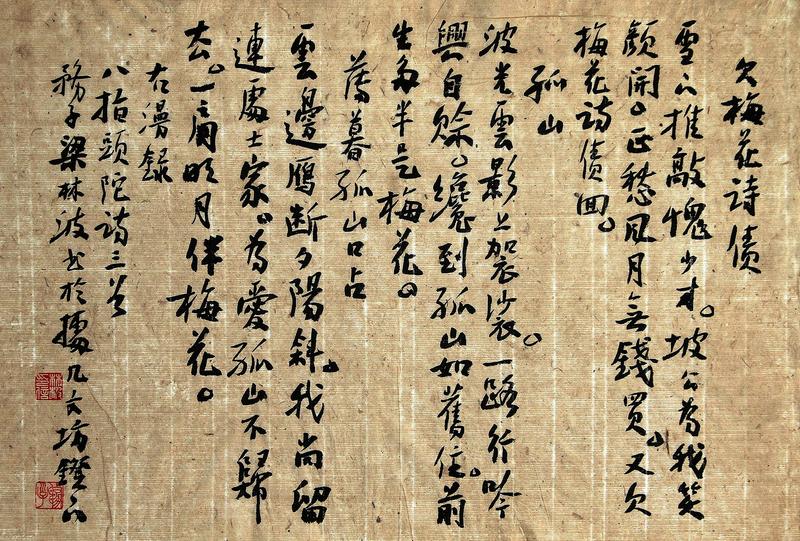 欠梅花詩債
雪下推敲愧少才。坡公為我笑
顏開。正愁風月無錢買。又欠
梅花詩債回。
孤山
波光雲影上袈裟。一路行吟
興自賒。纔到孤山如舊住。前
生多半是梅花。
薄暮孤山口占
雲邊鴈斷夕陽斜。我尚留
連處士家。為愛孤山不歸
去。一肩明月伴梅花。
右漫錄
八指頭陀詩三首
務子梁林波書於據几文坊鐙下